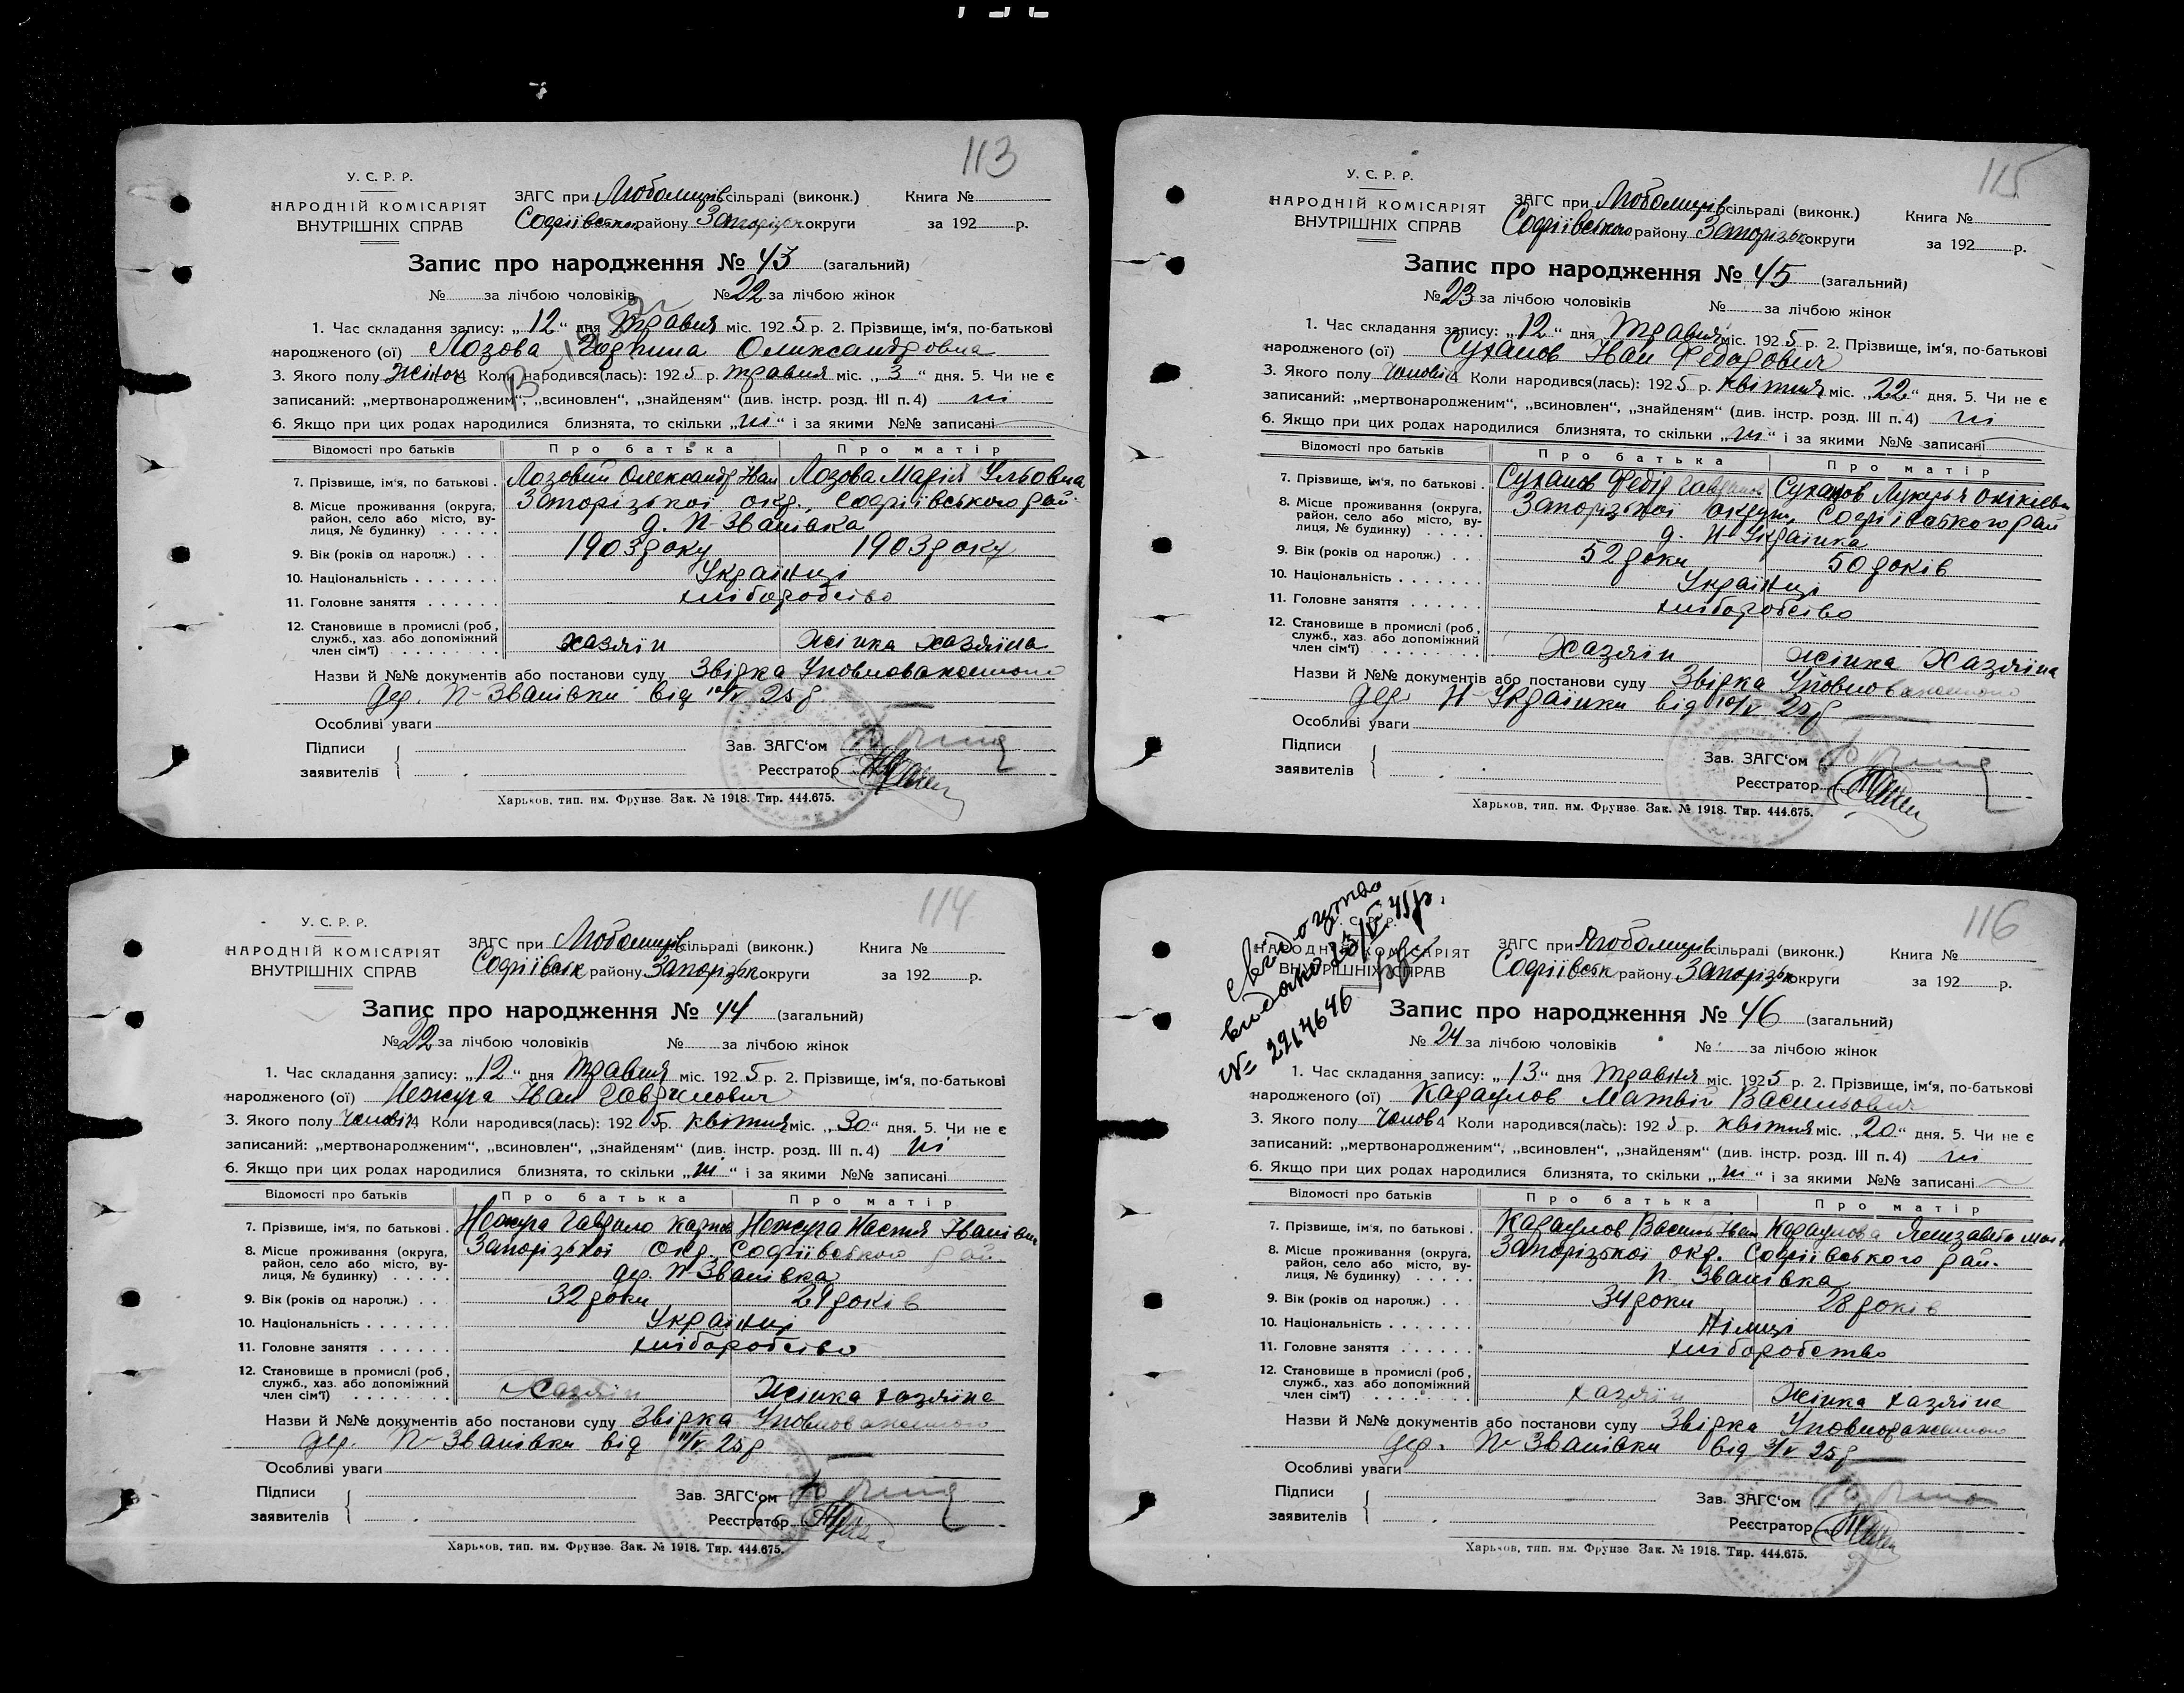 113
У. С. Р. Р.
НАРОДНІЙ КОМІСАРІЯТ
ВНУТРІШНІХ СПРАВ
ЗАГС при Любомирів сільраді (виконк.) Книга №
Софіївськ району Запорізьк округи за 192 р.
Запис про народження № 43 (загальний)
№ за лічбою чоловіків № 22 за лічбою жінок
1. Час складання запису: „12“ дня травня міс. 1925 р. 2. Прізвище, ім'я, по-батькові
народженого (ої) Лозова Олександровна
3. Якого полу Жіноч 4 Коли народився(лась): 1925 р. травня міс. „3“ дня. 5. Чи не є
записаний: „мертвонародженим“, „всиновлен“, „знайденям“ (див. інстр. розд. III п. 4) ні
6. Якщо при цих родах народилися близнята, то скільки „ні“ і за якими №№ записані
Відомості про батьків Про батька Про матір
7. Прізвище, ім'я, по батькові. Лозовий Олександр Іван Лозова Марія Ульовна
8. Місце проживання (округа, район, село або місто, вулиця, № будинку) Запорізької окр., Софіївського рай.
д. П Званівка
9. Вік (років од нарοдж.) 1903 року 1903 року
10. Національність Українці
11. Головне заняття хліборобство
12. Становище в промислі (роб., служб., хаз. або допоміжний член сім'ї) хазяїн жінка хазяїна
Назви й №№ документів або постанови суду Звірка Уповноваженного
дер. П-Званівки від 10/V 25 р.
Особливі уваги
Підписи
заявителів
Зав. ЗАГС'ом
Реєстратор
Харьков, тип. им. Фрунзе. Зак. № 1918. Тир. 444.675.
115
У. С. Р. Р.
НАРОДНІЙ КОМІСАРІЯТ
ВНУТРІШНІХ СПРАВ
ЗАГС при Любомирів сільраді (виконк.) Книга №
Софіївського району Запорізьк округи за 192 р.
Запис про народження № 45 (загальний)
№ 23 за лічбою чоловіків № за лічбою жінок
1. Час складання запису: „12“ дня травня міс. 1925 р. 2. Прізвище, ім'я, по-батькові
народженого (ої) Суханов Іван Федорович
3. Якого полу Чоловіч 4 Коли народився(лась): 1925 р. квітня міс. „22“ дня. 5. Чи не є
записаний: „мертвонародженим“, „всиновлен“, „знайденям“ (див. інстр. розд. III п. 4) ні
6. Якщо при цих родах народилися близнята, то скільки „ні“ і за якими №№ записані
Відомості про батьків Про батька Про матір
7. Прізвище, ім'я, по батькові. Суханов Федір Суханов Лукерья
8. Місце проживання (округа, район, село або місто, вулиця, № будинку) Запорізької округи, Софіївського рай
д. Н-Українка
9. Вік (років од народж.) 52 роки 50 років
10. Національність Українці
11. Головне заняття хліборобство
12. Становище в промислі (роб., служб., хаз. або допоміжний член сім'ї) Хазяїн жінка Хазяїна
Назви й №№ документів або постанови суду Звірка Уповноваженного
дер. Н-Українки від 10/V 25 р
Особливі уваги
Підписи
заявителів
Зав. ЗАГС'ом
Реєстратор
Харьков, тип. им. Фрунзе. Зак. № 1918. Тир. 444.675.
114
У. С. Р. Р.
НАРОДНІЙ КОМІСАРІЯТ
ВНУТРІШНІХ СПРАВ
ЗАГС при Любомирів сільраді (виконк.) Книга №
Софіївськ району Запорізьк округи за 192 р.
Запис про народження № 44 (загальний)
№ 22 за лічбою чоловіків № за лічбою жінок
1. Час складання запису: „12“ дня травня міс. 1925 р. 2. Прізвище, ім'я, по-батькові
народженого (ої) Нежура Іван Гаврилович
3. Якого полу Чоловіч 4 Коли народився(лась): 1925 р. квітня міс. „30“ дня. 5. Чи не є
записаний: „мертвонародженим“, „всиновлен“, „знайденям“ (див. інстр. розд. III п. 4) ні
6. Якщо при цих родах народилися близнята, то скільки „ні“ і за якими №№ записані
Відомості про батьків Про батька Про матір
7. Прізвище, ім'я, по батькові. Нежура Гаврило Карпов Нежура Настя Іванівн
8. Місце проживання (округа, район, село або місто, вулиця, № будинку) Запорізької Окр. Софіївського рай.
дер. П-Званівка
9. Вік (років од народж.) 32 роки 29 років
10. Національність Українці
11. Головне заняття хліборобство
12. Становище в промислі (роб., служб., хаз. або допоміжний член сім'ї) Хазяїн Жінка хазяїна
Назви й №№ документів або постанови суду Звірка Уповноваженного
дер. П-Званівки від 11/V 25 р
Особливі уваги
Підписи
заявителів
Зав. ЗАГС'ом
Реєстратор
Харьков, тип. им. Фрунзе. Зак. № 1918. Тир. 444.675.
116
видано
№ 2914646
У. С. Р. Р.
НАРОДНІЙ КОМІСАРІЯТ
ВНУТРІШНІХ СПРАВ
ЗАГС при Любомирів сільраді (виконк.) Книга №
Софіївськ району Запорізьк округи за 192 р.
Запис про народження № 46 (загальний)
№ 24 за лічбою чоловіків № за лічбою жінок
1. Час складання запису: „13“ дня травня міс. 1925 р. 2. Прізвище, ім'я, по-батькові
народженого (ої) Караулов Матвій Васильович
3. Якого полу Чолов 4 Коли народився(лась): 1925 р. квітня міс. „20“ дня. 5. Чи не є
записаний: „мертвонародженим“, „всиновлен“, „знайденям“ (див. інстр. розд. III п. 4) ні
6. Якщо при цих родах народилися близнята, то скільки „ні“ і за якими №№ записані
Відомості про батьків Про батька Про матір
7. Прізвище, ім'я, по батькові. Караулов Василь Іван Караулова Єлизавета
8. Місце проживання (округа, район, село або місто, вулиця, № будинку) Запорізької окр. Софіївського рай.
П Званівка
9. Вік (років од народж.) 34 роки 28 років
10. Національність Німці
11. Головне заняття хліборобство
12. Становище в промислі (роб., служб., хаз. або допоміжний член сім'ї) хазяїн Жінка хазяїна
Назви й №№ документів або постанови суду Звірка Уповноваженного
дер. П-Званівки від 3/V 25 р
Особливі уваги
Підписи
заявителів
Зав. ЗАГС'ом
Реєстратор
Харьков, тип. им. Фрунзе. Зак. № 1918. Тир. 444.675.